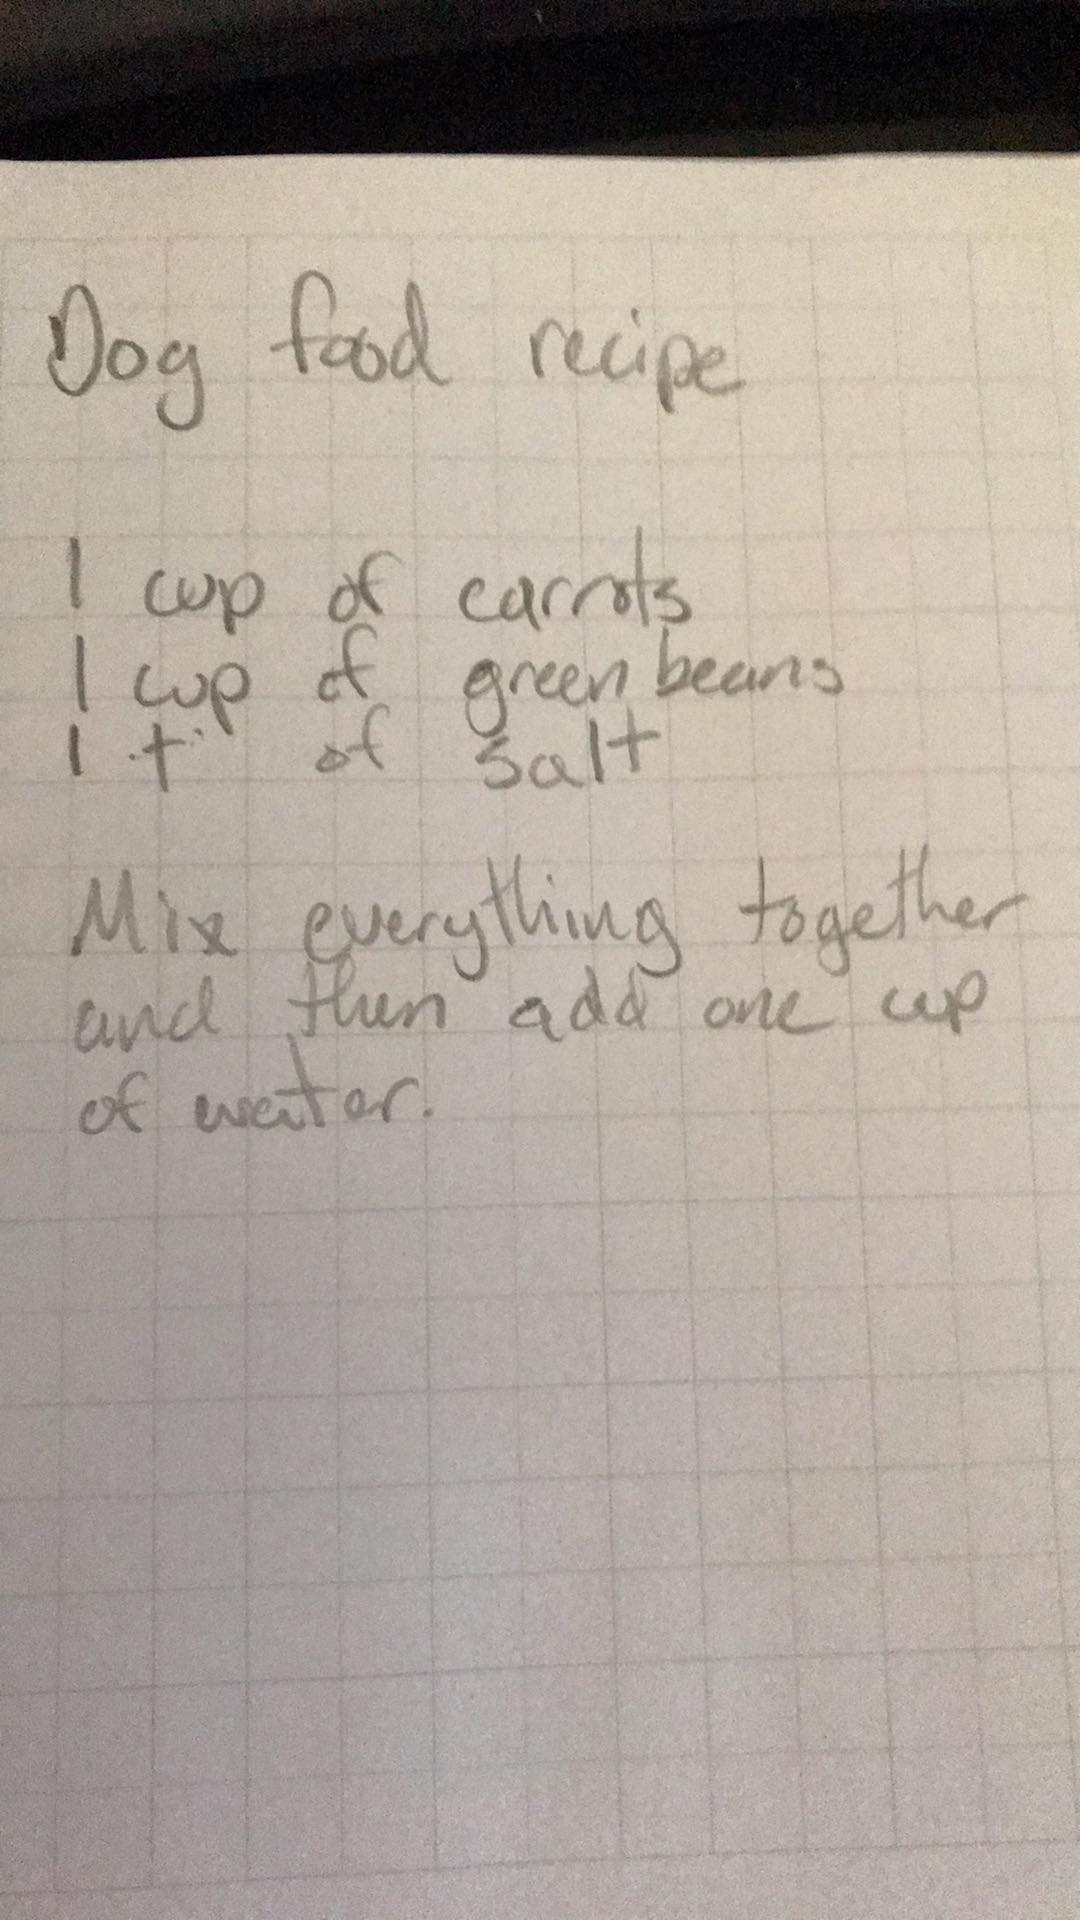 Dog food recipe
1 cup of carrots
1 cup of green beans
1 t of salt
Mix everything together
and then add one cup
of water.